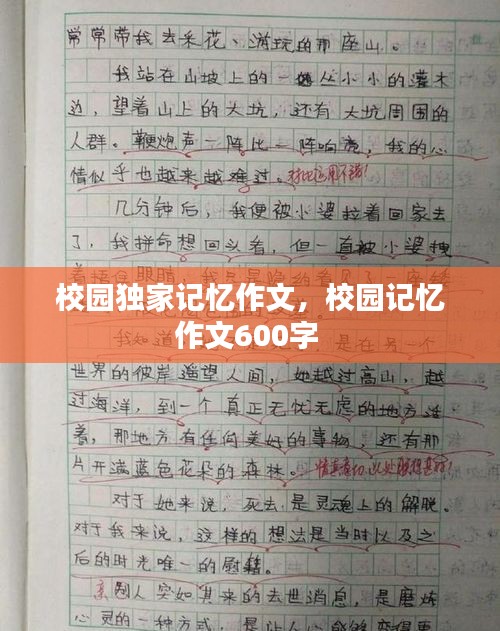 常常带我去采花、游玩的那座山。
我站在山坡上的一丛小小的灌木
边，望着山上的大坑，还有大坑周围的
人群。鞭炮声一阵比一阵响亮，我的心
情似乎也越来越难过。对比运用不错！
几分钟后，我便被小婆拉着回家去
了，我拼命想回头看，但一直被小婆拽
校园独家记忆作文，校园记忆
作文600字
我知道
是在另一个
世界的彼岸遥望人间，她越过高山，越
过海洋，到一个真正无忧无虑的地方活
着，那地方有任何美好的事物，还有那
片开满蓝色花朵的森林。
对于她来说，死去是灵魂上的解脱。
对于我来说，这样的想法是当时以及之
后的时光唯一的慰籍。
别人突如其来的去世消息，是磨炼
心灵的一种方式，是让人心能够变得更